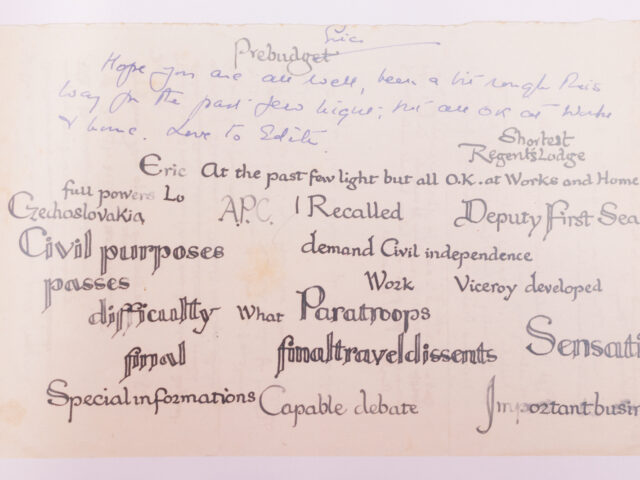 Eric
Prebudget
Hope you are all well, been a bit rough this
way for the past few nights; but all OK at Works
& home. Love to Edith.
Shortest
Regent's Lodge
Eric At the past few light but all O.K. at Works and Home
full powers Lo
Czechoslovakia A.P.C. I Recalled Deputy First Sea
Civil purposes demand Civil independence
passes Work Viceroy developed
difficulty What Paratroops
final final travel dissents Sensati
Special informations Capable debate Important busin